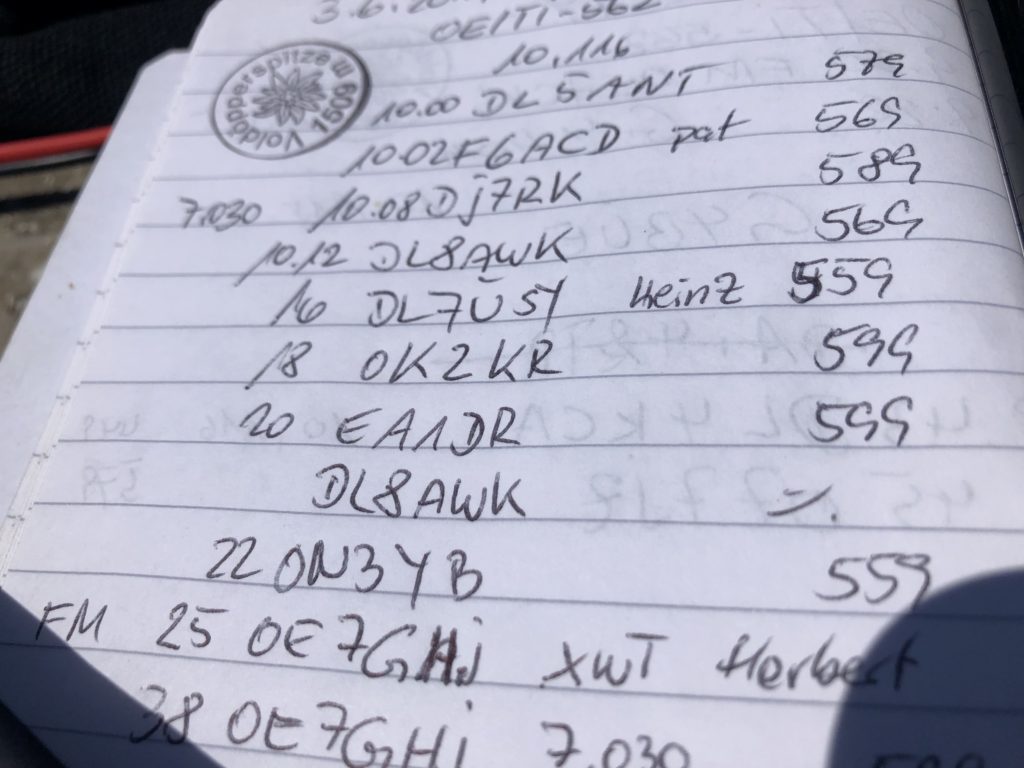 3.6.20
OE/TI-562
10,116
Voldöpperspitze W 1509
10.00 DL5ANT 579
10.02 F6ACD pat 569
7.030 10.08 Dj7RK 589
10.12 DL8AWK 569
16 DL7USY Heinz 559
18 OK2KR 599
20 EA1DR 599
DL8AWK -/.
22 ON3YB 559
FM 25 OE7GHj XWT Herbert
38 OE7GHi 7.030 599